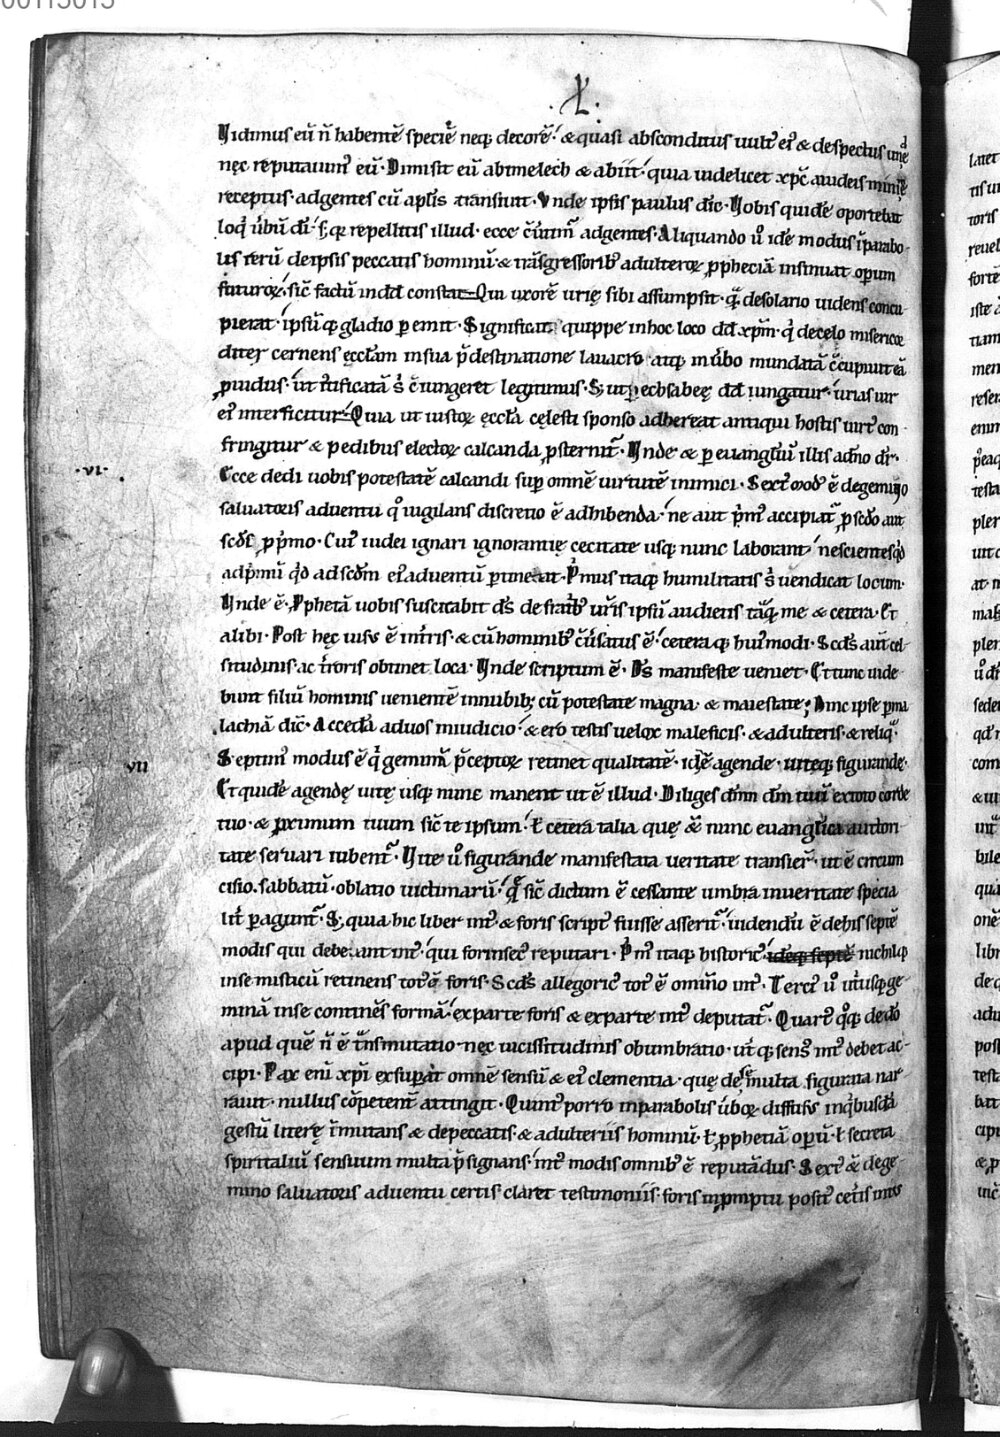 00113013
.X.
Vidimus eū n̄ habentē speciē neq; decorē. & quasi absconditus uult' ei' & despectus unde
nęc reputauim' eū. Dimisit eū abimelech & abiit. quia uidelicet xpc̄ a iudeis minime
receptus. ad gentes cū apl̄is transiuit. Vnde ipsis paulus dic̄. Vobis quidē oportebat
loqi uerbū dī. s; qr repellitis illud. ecce cūtim̄ ad gentes. Aliquando u° idē modus in parabo-
lis rerū de ipsis peccatis hominū. & trāsgressorib' adulteroꝝ ꝓpheciā insinuat operum
futuroꝝ. sic̄ factū in dd constat. Qui uxorē urię sibi assumpsit. qā de solario uidens concu-
pierat. ipsūq; gladio peremit. Significat quippe in hoc loco dd xpm̄. qi de celo misericor
diter cernens ęccl̄am in sua p̄destinatione lauacro atq; in u'bo mundatā c̄cupiuit eā
ꝓuidus. ut iustificatā s' c̄iungeret legitimus. S; ut bechsabeę dd iungatur. urias uir
ei' interficitur. Quia ut iustoꝝ ęccl̄a cęlesti sponso adhereat antiqui hostis uirt' con
fringitur & pedibus electoꝝ calcanda ꝓsternit'. Vnde & per euangl̄iū illis a dn̄o dr̄.
.VI.
Ecce dedi uobis potestatē calcandi sup omnē uirtutē inimici. Sext' mod' ē de gemino
saluatoris aduentu q° uigilans discretio ē adhibenda. ne aut p̄m' accipiat' ꝓ sc̄do aut
sc̄ds ꝓ p̄mo. Cui' iudei ignari ignorantię cecitate usq; nunc laborant. nescientes qd
ad p̄mū qd ad sc̄dm ei' aduentū ptineat. P̄mus itaq; humilitatis s' uendicat locum.
Vnde ē. Ꝓphetā uobis suscitabit ds̄ de fratib' ur̄is ipsū audietis tāq; me & cetera. Et
alibi. Post hęc uisus ē in tr̄is. & cū hominib' c̄uersatus ē. cetera q; hui'modi. Scd's aut̄ cel-
situdinis. ac t'roris obtinet loca. Vnde scriptum ē. Ds̄ manifeste ueniet. Et tunc uide
bunt filiū hominis uenientē in nubib; cū potestate magna. & maiestate; Hinc ipse p ma
lachiā dic̄. Accedā ad uos in iudicio. & ero testis uelox maleficis. & adulteris. & reliq̄.
VII
Septim' modus ē qi geminā p̄ceptoꝝ retinet qualitatē. id ē agende. uiteq; figurande.
Et quidē agendę uitę usq; nunc manent ut ē illud. Diliges dn̄m dm̄ tuū ex toto corde
tuo. & ꝓximum tuum sic̄ te ipsum. ł cetera talia quę & nunc euangl̄ica auctori
tate seruari iubent'. Vite u° figurande manifestata ueritate transier̄. ut ē circum
cisio. sabbatū. oblatio uictimarū. qē sic̄ dictum ē cessante umbra in ueritate specia
lit' peragunt'. S; quia hic liber int' & foris script' fuisse asserit'. uidendū ē de his septē
modis qui debeant int'. qui forinsec' reputari. P̄m' itaq; historic' nichilq;
in se misticū retinens tot' ē foris. Scd's allegoric' tot' ē omīno int'. Terci' u° ut'usq; ge
minā in se continēs formā. ex parte foris & ex parte int' deputat'. Quart' q°q; de dō
apud quē n̄ ē trāsmutatio. nęc uicissitudinis obumbratio. ut' q; sens' int' debet ac-
cipi. Pax eni xpi exsupat omnē sensū & ei' clementia. quę de se in multa figurata nar
rauit. nullus cōpetent' attingit. Quint' porro in parabolis u'boꝝ diffusus in qibusdā
gestū literę īmutans & de peccatis. & adulteriis hominū. ł ꝓphetiā operū. ł secreta
spiritaliū sensuum multa p̄signans. int' modis omnib' ē reputādus. Sext' & de ge-
mino saluatoris aduentu certis claret testimoniis. foris in ꝓmptu posit' cet'is